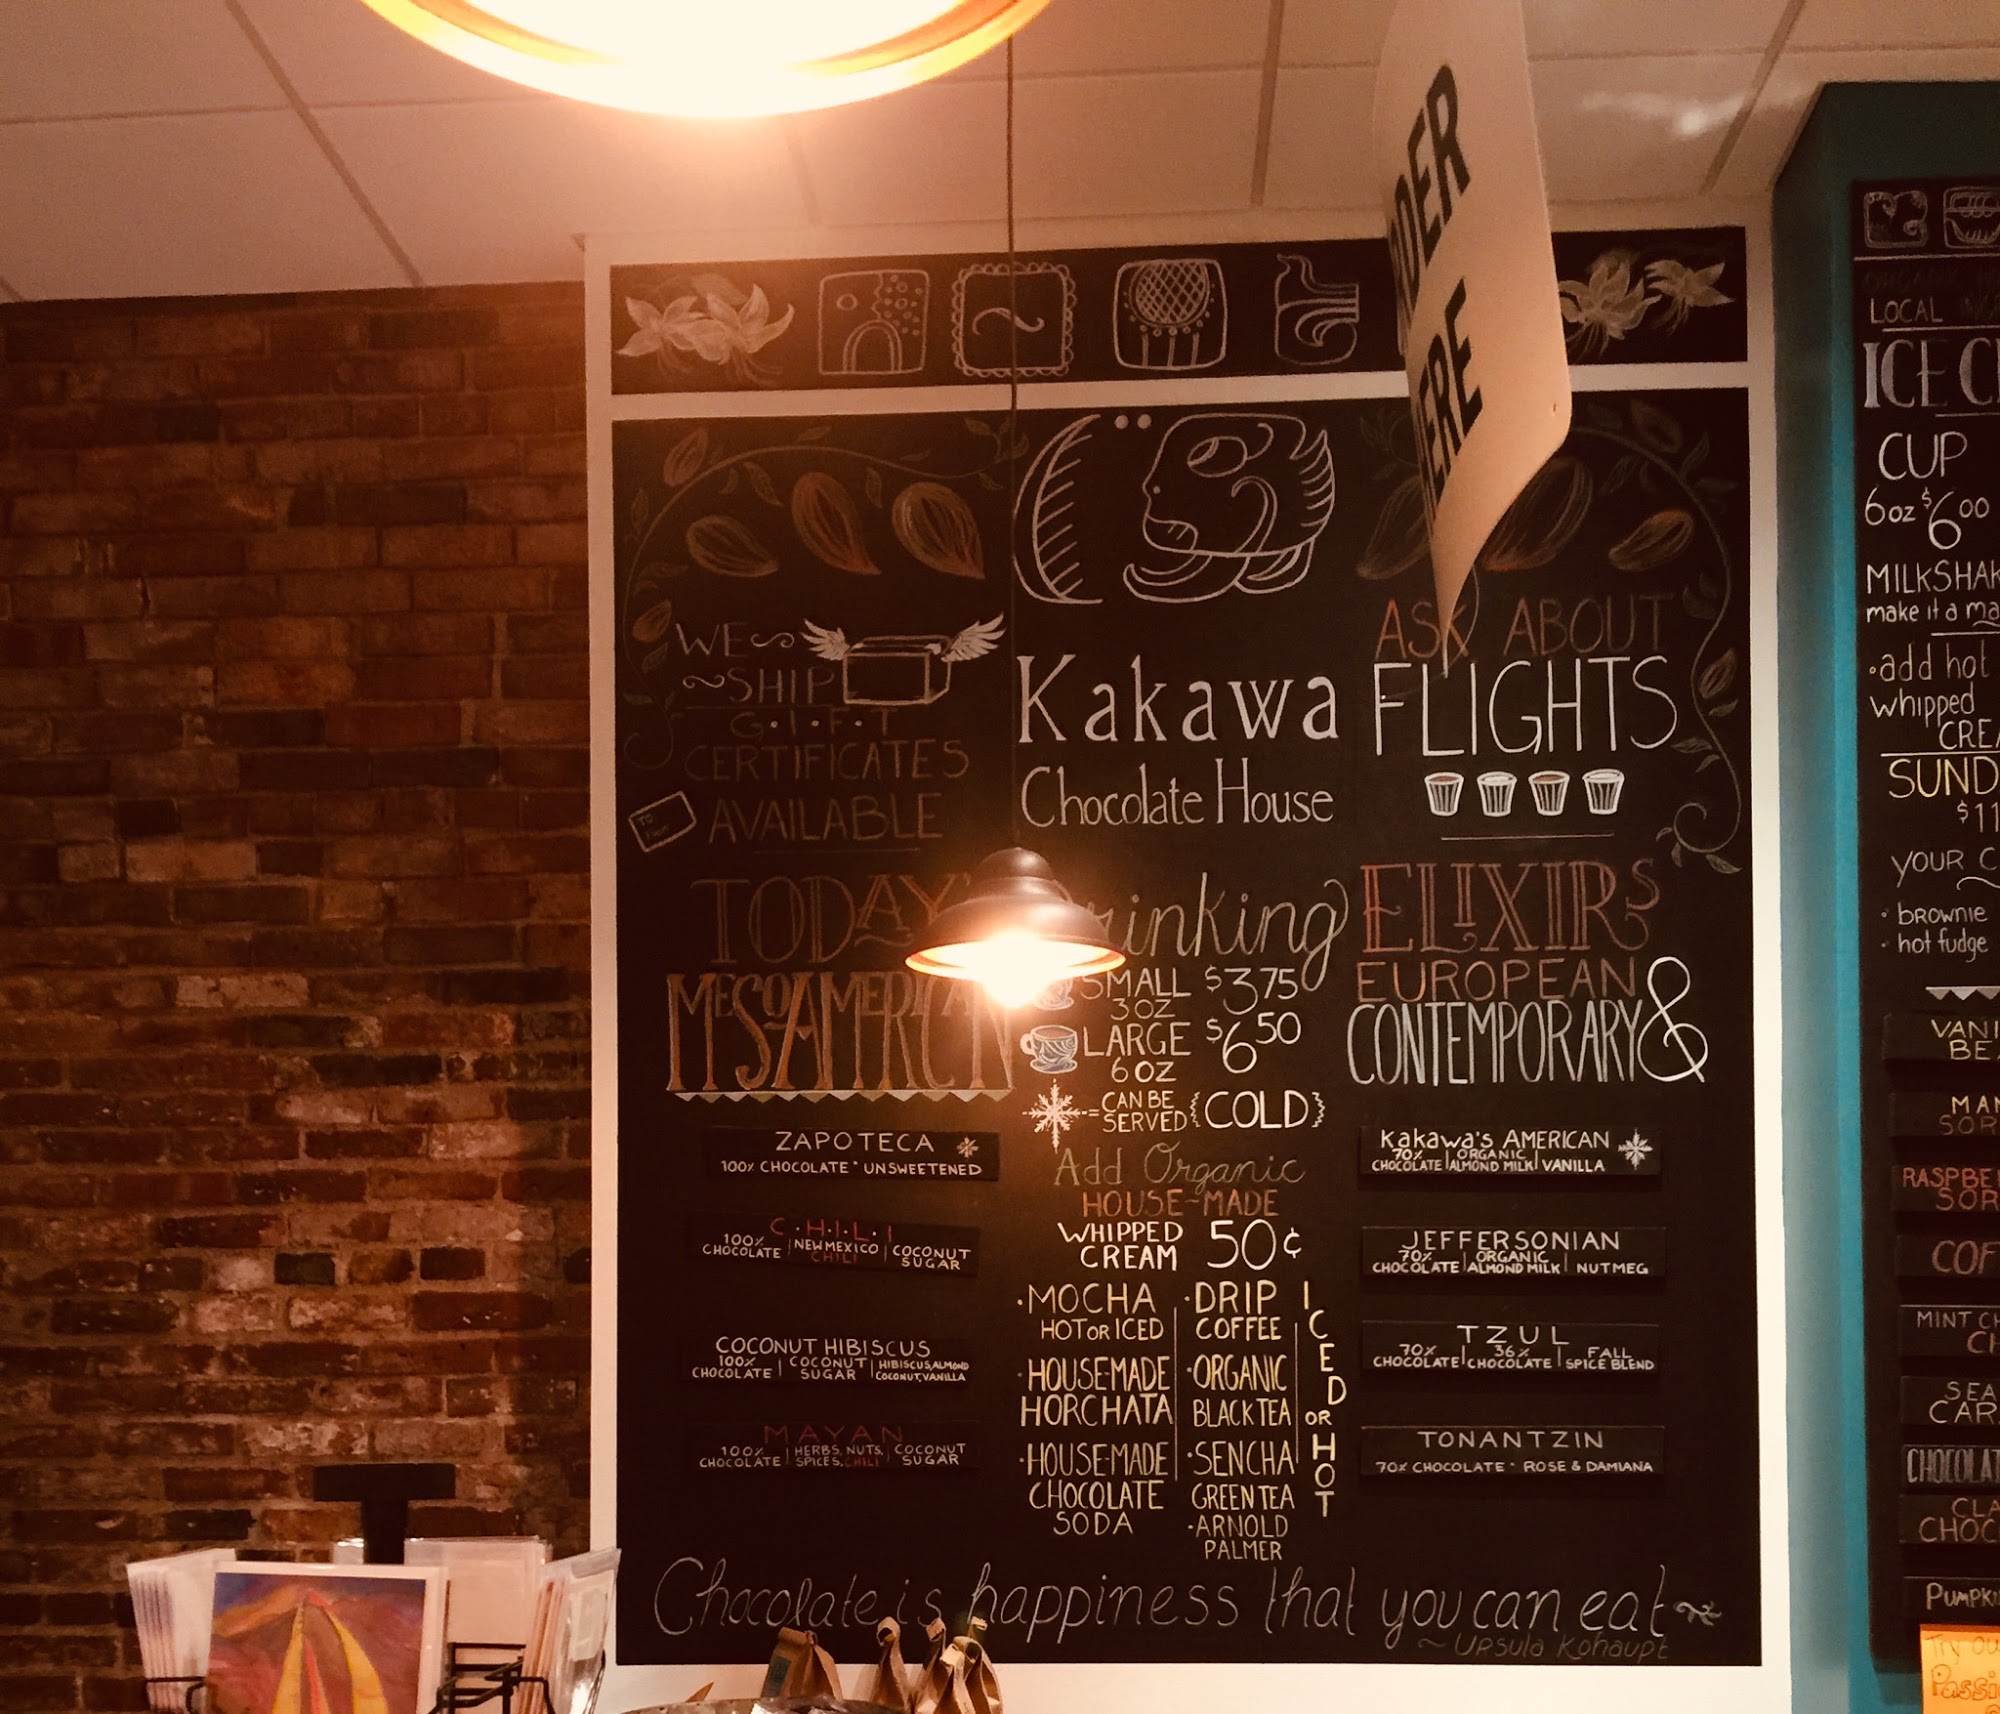 ORDER
HERE
WE
SHIP
G·I·F·T
CERTIFICATES
AVAILABLE
TO:
Kakawa
Chocolate House
ASK ABOUT
FLIGHTS
TODAY'S
MESOAMERICAN
ZAPOTECA
100% CHOCOLATE * UNSWEETENED
C·H·I·L·I
100% CHOCOLATE | NEW MEXICO CHILI | COCONUT SUGAR
COCONUT HIBISCUS
100% CHOCOLATE | COCONUT SUGAR | HIBISCUS, ALMOND COCONUT, VANILLA
MAYAN
100% CHOCOLATE | HERBS, NUTS, SPICES, CHILI | COCONUT SUGAR
Drinking
SMALL $3.75
3 OZ
LARGE $6.50
6 OZ
= CAN BE SERVED {COLD}
Add Organic
HOUSE-MADE
WHIPPED CREAM 50¢
·MOCHA
HOT OR ICED
·HOUSEMADE
HORCHATA
·HOUSE-MADE
CHOCOLATE
SODA
·DRIP
COFFEE
·ORGANIC
BLACK TEA
·SENCHA
GREEN TEA
·ARNOLD
PALMER
ICED OR HOT
ELIXIRS
EUROPEAN &
CONTEMPORARY
Kakawa's AMERICAN
70% CHOCOLATE | ORGANIC ALMOND MILK | VANILLA
JEFFERSONIAN
70% CHOCOLATE | ORGANIC ALMOND MILK | NUTMEG
TZUL
70% CHOCOLATE | 36% CHOCOLATE | FALL SPICE BLEND
TONANTZIN
70% CHOCOLATE * ROSE & DAMIANA
Chocolate is happiness that you can eat
~ Ursula Kohaupt
LOCAL
ICE C
CUP
6oz $6.00
MILKSHAK
make it a ma
·add hot
whipped
CREA
SUND
$11
YOUR C
· brownie
· hot fudge
VANI
BE
MAN
SOR
RASPBE
SOR
COF
MINT CH
CH
SEA
CAR
CHOCOLAT
CLA
CHOC
PUMPKI
Try ou
Passi